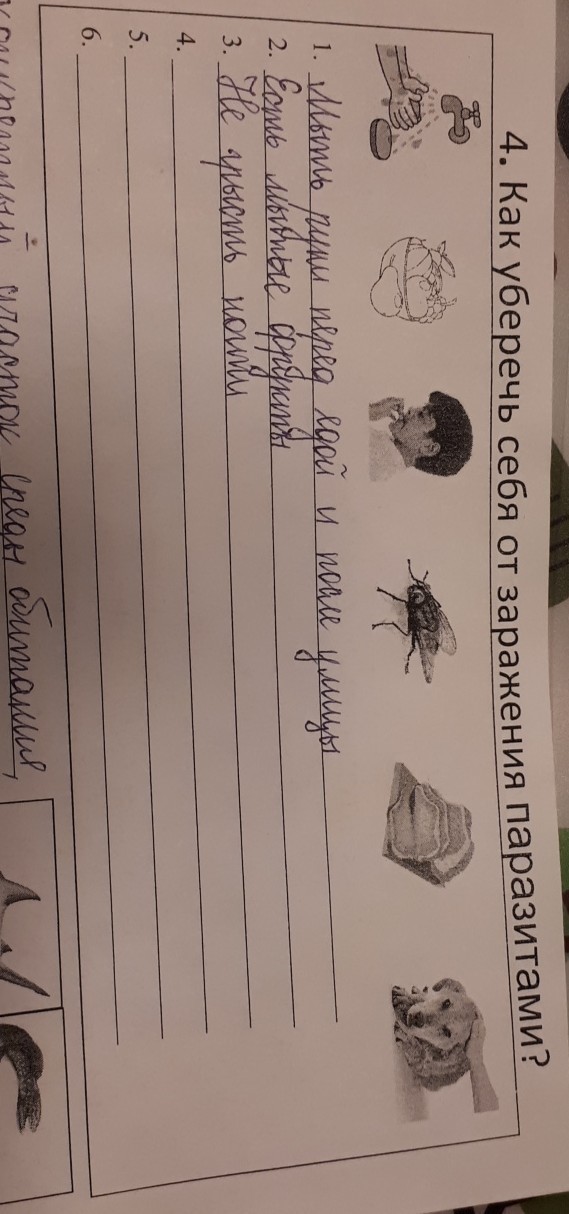 4. Как уберечь себя от заражения паразитами?
1. Мыть руки перед едой и после улицы
2. Есть мытые фрукты
3. Не грысть ногти
4.
5.
6.
участок среды обитания,